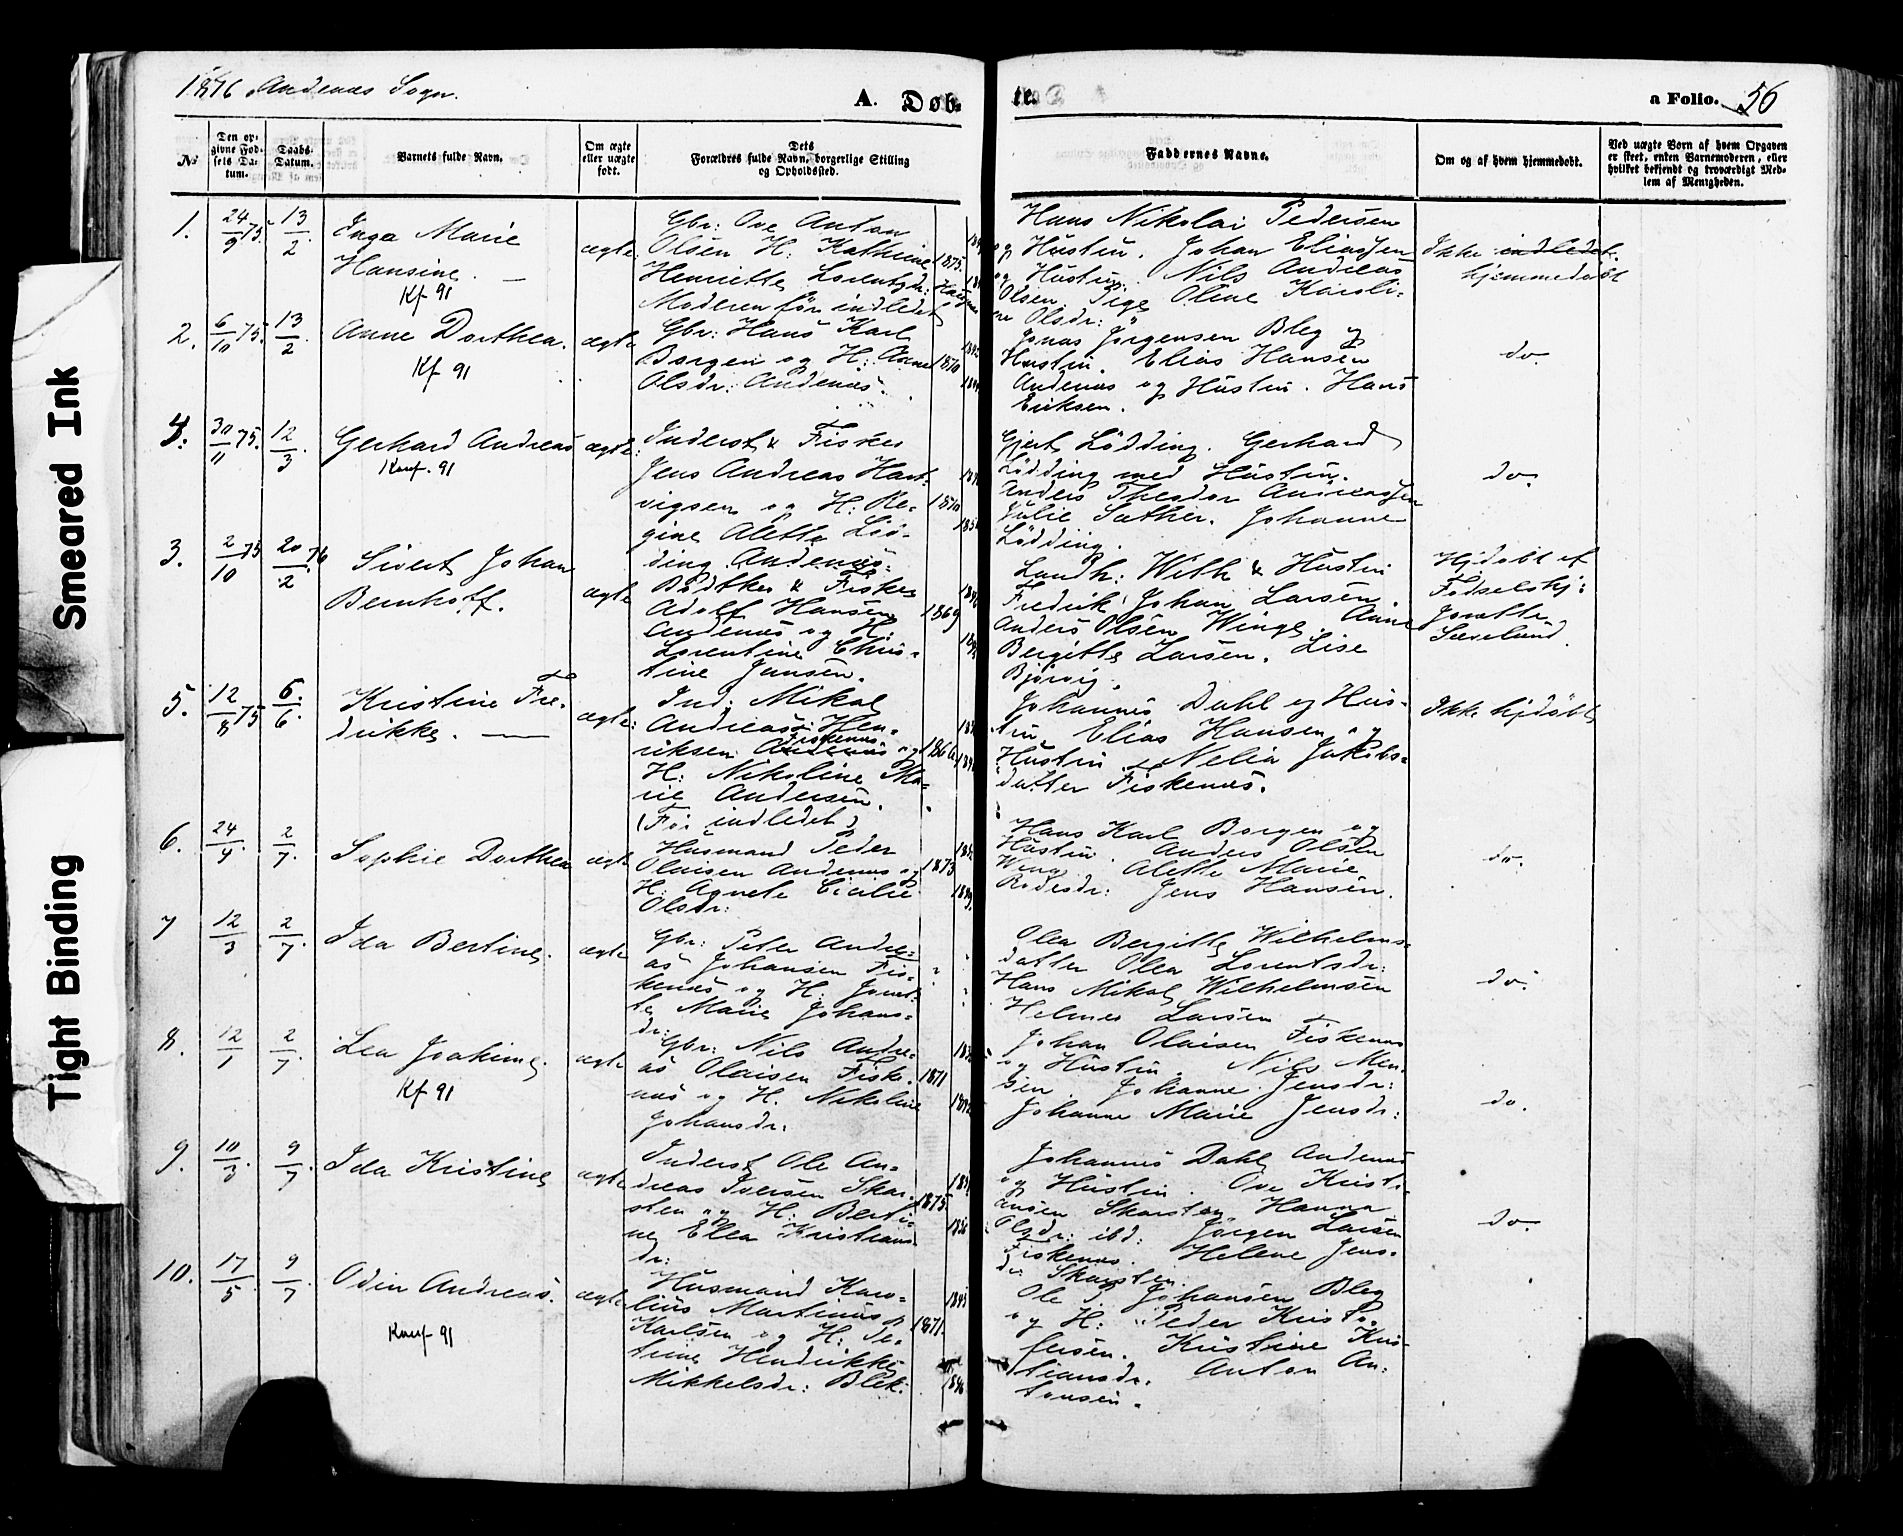 Smeared Ink
Tight Binding
1876 Andenæs Sogn.
A. Døb-
te.
a Folio. 56
No
Den opgivne Fødsels Datum.
Daabs-Datum.
Barnets fulde Navn.
Om ægte eller uægte født.
Dets Forældres fulde Navn, borgerlige Stilling og Opholdssted.
Faddernes Navne.
Om og af hvem hjemmedøbt.
Ved uægte Børn af hvem Opgaven er skeet, enten Barnemoderen, eller hvilket bekjendt og troværdigt Medlem af Menigheden.
1. 24/9 75. 13/2. Inga Marie
Hansine. —
Kf 91
ægte.
Gbr: Ove Anton
Olsen H: Kathrine
Henriette Lorentzdr:
Moderen før indledet
1875.
Hans Nikolai Pedersen
og Hustru. Johan Eliassen
og Hustru. Nils Andreas
Olsen. Pige Oline Karoli-
ne Olsdr:
Ikke indledet.
hjemmedøbt
2. 6/10 75. 13/2 Anne Dorthea.
Kf 91
ægte
Gbr: Hans Karl
Borgen og H: Anne
Olsdr: Andenæs.
1870
Jonas Jørgensen Bleg og
Hustru. Elias Hansen
Andenæs og Hustru. Hans
Eriksen.
do.
4. 30/11 75. 12/3. Gerhard Andreas
Konf. 91
ægte
Inderst & Fisker
Jens Andreas Hart-
vigsen og H: Re-
gine Alette Lød-
ding. Andenæs.
1870
Gjert Lödding. Gerhard
Lödding med Hustru.
Anders Theodor Andreassen
Julie Sæther. Johanne
Lödding.
do.
3. 2/10 75 20/2 76 Sivert Johan
Bernhoff.
ægte
Bødtker & Fisker
Adolf Hansen
Andenæs og H:
Lorentine Chris-
tine Jansen.
1869
Landh: With & Hustru
Fredrik Johan Larsen
Anders Olsen Winge. Anne
Bergitte Larsen. Lise
Bjørvig.
Hjdøbt af
Fødselshj:
Jonette
Sævelund
5. 12/8 75 6/6. Kristine Fre-
drikke. —
ægte:
Ind: Mikal
Andreas Hen-
riksen Fiskenæs og
H: Nikoline Ma-
rie Andersen.
(Før indledet)
1866
Johannes Dahl og Hus-
tru Elias Hansen og
Hustru. Nelia Jakobs-
datter Fiskenæs.
Ikke hjdøbt
6. 24/4. 2/7. Sophie Dorthea
ægte
Husmand Peder
Olaisen Andenæs og
H: Agnete Cicilie
Olsdr:
1873
Hans Karl Borgen og
Hustru. Anders Olsen
Wing Alette Marie
Rodesdr: Jens Hansen.
do.
7 12/3 2/7. Ida Bertine.
ægte
Gbr: Peter Andre-
as Johansen Fis-
kenæs og H: Jonet-
te Marie Johans-
dr:
Olea Bergitte Wilhelms-
datter Olea Lorentsdr:
Hans Mikal Wilhelmsen
Helmer Larsen
do.
8. 12/1 2/7. Lea Joakime.
Kf 91
ægte
Gbr: Nils Andre-
as Olaisen Fiske-
næs og H. Nikoline
Johansdr:
1871
Johan Olaisen Fiskenæs
og Hustru. Nils Men-
sen Johanne Jensdr:
Johanne Marie Jensdr:
do.
9. 10/3. 9/7. Ida Kristine
ægte
Inderst Ole An-
dreas Iversen Skar-
sten og H: Berti-
ne Elea Kristians-
dr:
1875
Johannes Dahl Andenæs
og Hustru. Ove Kristi-
ansen Skarsten Hanna
Olsdr: ibd: Jørgen Larsen
Fiskenæs. Helene Jens-
dr Skarsten.
do.
10. 17/5 9/7. Odin Andreas.
Konf 91
ægte
Husmand Karo-
lius Martinus
Karlsen og H: Pe-
trine Hendrikke
Mikkelsdr: Blek.
1871.
1845
1846
Ole P. Johansen Bleg
og H: Peder Kristo-
fersen. Kristine Kris-
tiansdr. Anton An-
tonsen.